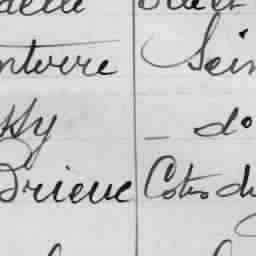 nterre Sein
ssy - do
Brieuc Cotes du